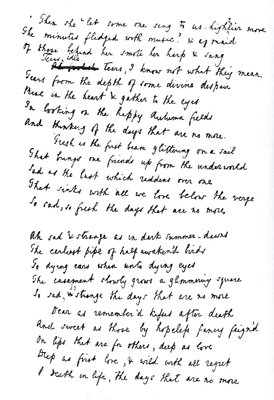 Then she "let some one sing to us. lightlier move
The minutes fledged with music." & a maid
of those behind her smote her harp & sang
Tears, idle tears, I know not what they mean.
Tears from the depth of some divine despair
Rise in the heart & gather to the eyes
In looking on the happy Autumn fields
And thinking of the days that are no more.
Fresh as the first beam glittering on a sail
That brings our friends up from the underworld
Sad as the last which reddens over one
That sinks with all we love below the verge
So sad, so fresh the days that are no more.
Ah sad & strange as in dark summer-dawns
The earliest pipe of half awaken'd birds
To dying ears when unto dying eyes
The casement slowly grows a glimmering square
So sad, so strange the days that are no more
Dear as remember'd kisses after death
And sweet as those by hopeless fancy feign'd
On lips that are for others, deep as love
Deep as first love, & wild with all regret
O death in life, the days that are no more